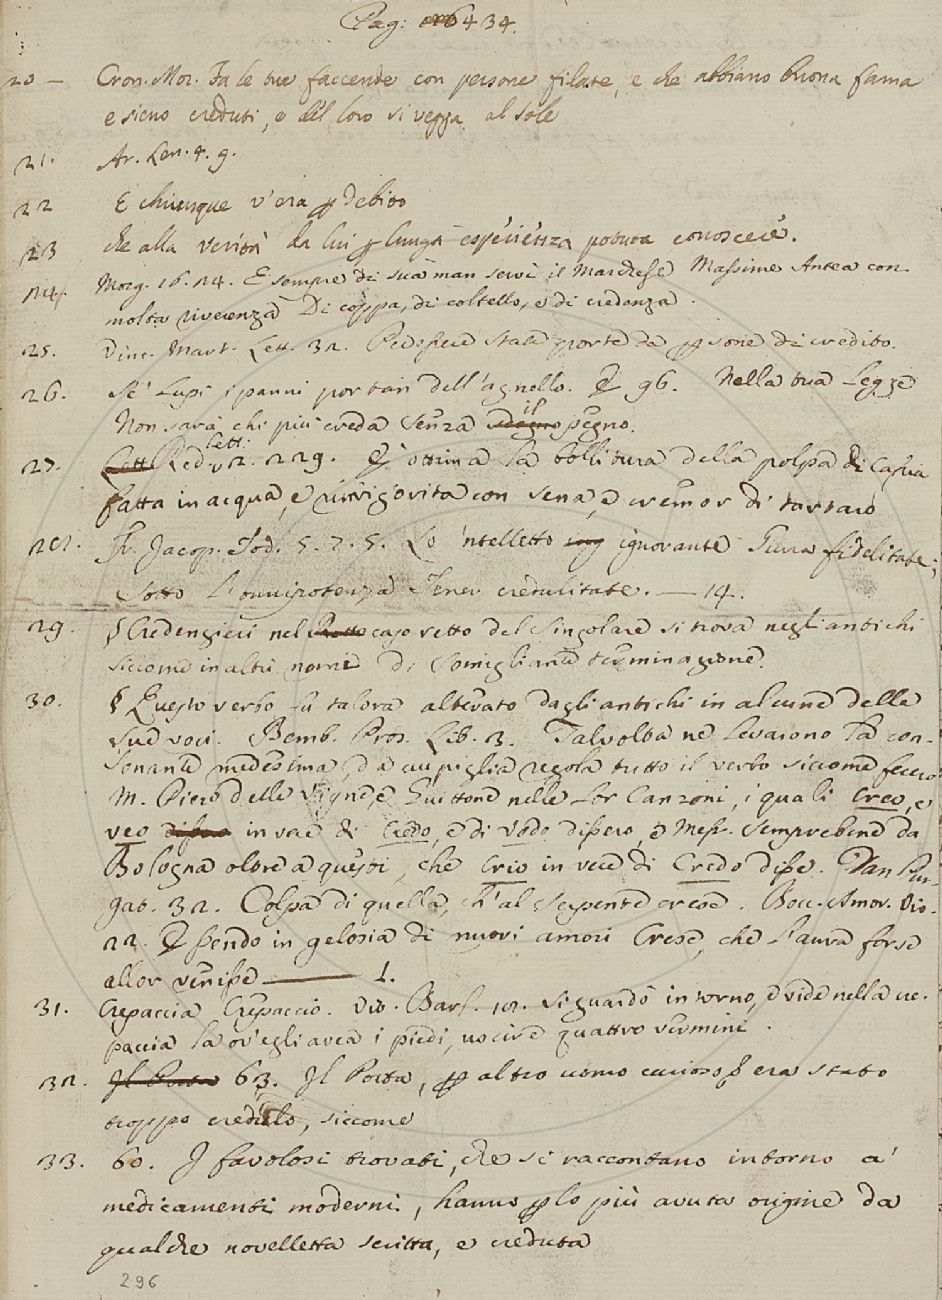 Pag: 434.
20 — Cron. Mor. Fa le tue faccende con persone fidate, e che abbiano buona fama
e sieno creduti, e del loro si vegga al sole
21. Ar. Len. 4. 9.
22 E chiunque v'era ꝑ debito
23 che alla verità da lui ꝑ lunga esperienza potuta conoscere.
24. Morg. 16. 24. E sempre di sua man servì il Marchese Massime Antea con
molta riverenza Di coppa, di coltello, e di credenza.
25. Vinc. Mart. Lett. 32. state porte da ꝑsone di credito.
26. Se' Lupi i panni portan dell'agnello. E 96. Nella tua Legge
Non sarà chi più creda senza il pegno.
27. Lett. Red. lett. 2. 229. È ottima la bollitura della polpa di Cassia
fatta in acqua, e rinvigorita con sena, e cremor di tartaro
28. Fr. Jacop. Tod. 5. 7. 5. Lo 'ntelletto ignorante Giura fidelitate;
Sotto l'onnipotenza Tener credulitate. — 14.
29. § Credenzieri nel caso retto del singolare si trova negli antichi
siccome in altri nomi di somigliante terminazione.
30. § Questo verbo fu talora alterato dagli antichi in alcune delle
sue voci. Bemb. Pros. Lib. 3. Talvolta ne levarono la con-
sonante medesima, da cui piglia regola tutto il verbo siccome fecero
M. Piero delle Vigne, e Guittone nelle lor Canzoni, i quali creo, e
veo in vece di Credo, e di Vedo dissero, e Mess. Semprebene da
Bologna oltre a questi, che crio in vece di Credo disse. Dan Pur-
gat. 32. Colpa di quella, ch'al serpente crese. Bocc. Amor. Vis.
22. Essendo in gelosia di nuovi amori Crese, che l'aura forse
allor venisse — 1.
31. Crepaccia Crepaccio. Vit. Bart. 12. si guardò intorno, e vide nella cre-
paccia la ov'egli avea i piedi, uscire quattro vermini.
32. 63. Il Porta, ꝑ altro uomo curioso, era stato
troppo credulo, siccome
33. 60. I favolosi trovati, che si raccontano intorno a'
medicamenti moderni, hanno ꝑ lo più avuta origine da
qualche novelletta scritta, e creduta
296